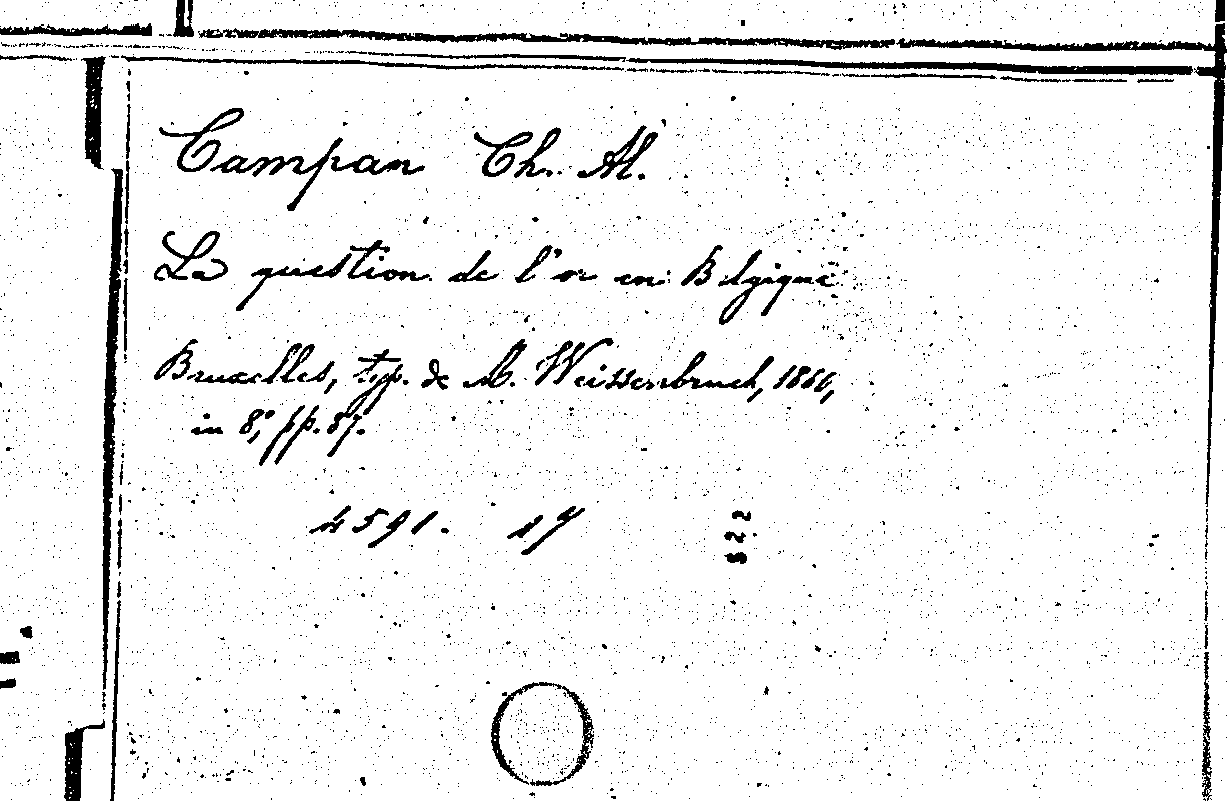 Campan Ch. Al.
La question de l'or en Belgique
Bruxelles, typ. de M. Weissenbruch, 1860,
in 8°, pp. 87.
4591. 17
522